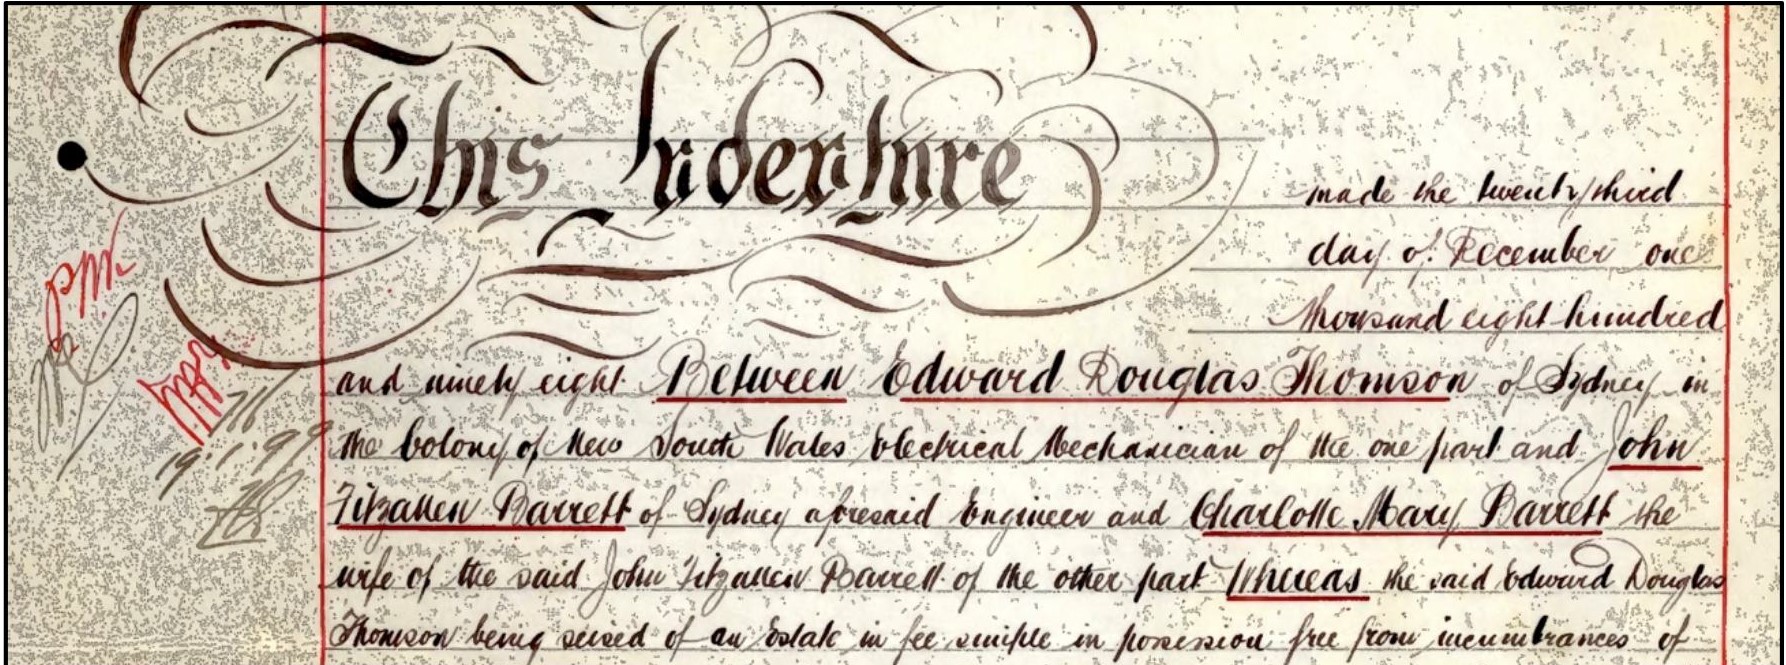 This Indenture made the twenty third
day of December one
thousand eight hundred
and ninety eight Between Edward Douglas Thomson of Sydney in
the Colony of New South Wales Electrical Mechanician of the one part and John
Fitzallen Barrett of Sydney aforesaid Engineer and Charlotte Mary Barrett the
wife of the said John Fitzallen Barrett of the other part Whereas the said Edward Douglas
Thomson being seised of an Estate in fee simple in possession free from incumbrances of
19.1.99